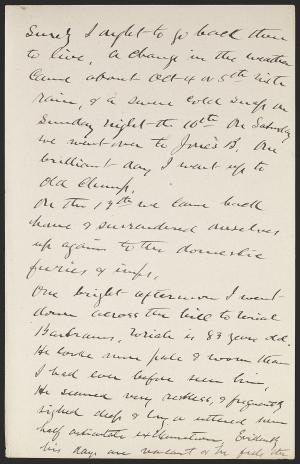 Surely I ought to go back there
to live. A change in the weather
came about Oct 4 or 5th with
rain, & a cold snap on
Sunday night the 10th. On Saturday
we went over to Jones's B. One
brilliant day I went up to
Old Clump.
On the 19th we came back
home & surrendered ourselves
up again to the domestic
furies & imps.
One bright afternoon I went
down across the hill to
is 83 years old.
He looks more pale & worn than
I had ever before seen him,
He seemed very restless, & frequently
sighed deep & uttered some
half articulate exclamations. Evidently
his days are vacant & he feels the